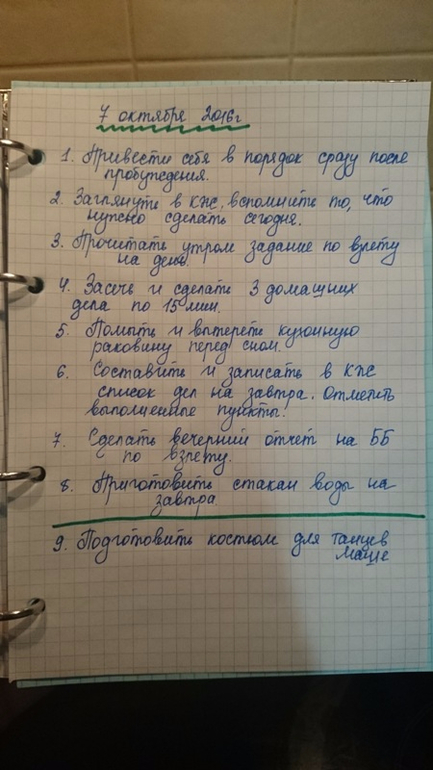 7 октября 2016г
1. Привести себя в порядок сразу после
пробуждения.
2. Заглянуть в КПС, вспомнить то, что
нужно сделать сегодня.
3. Прочитать утром задание по взлёту
на день.
4. Засечь и сделать 3 домашних
дела по 15 мин.
5. Помыть и вытереть кухонную
раковину перед сном.
6. Составить и записать в КПС
список дел на завтра. Отметить
выполненные пункты!
7. Сделать вечерний отчет на ББ
по взлету.
8. Приготовить стакан воды на
завтра
9. Подготовить костюм для танцев
Маше